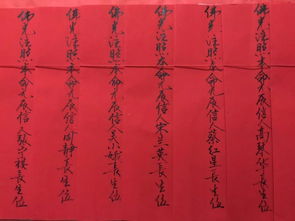 佛光注照本命元辰信人高 長生位
佛光注照本命元辰信人蔡红星長生位
佛光注照本命元辰信人宋 英長生位
佛光注照本命元辰信人吴小 長生位
佛光注照本命元辰信 静長生位
佛光注照本命元辰信人 長生位